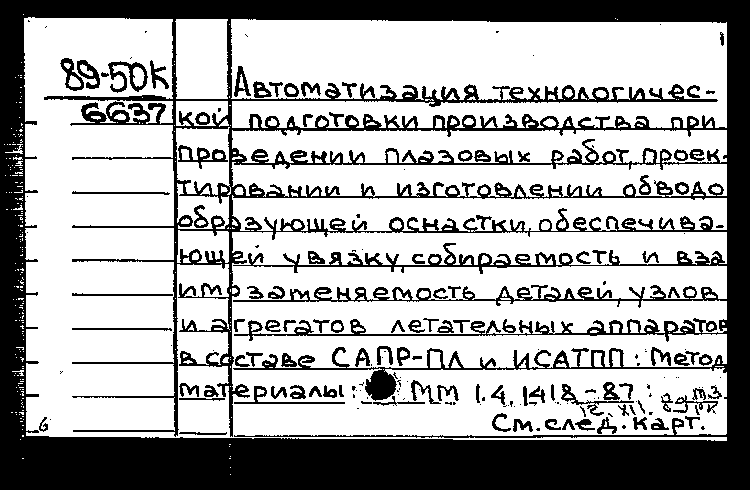 89-50К
6637
Автоматизация технологичес-
кой подготовки производства при
проведении плазовых работ, проек-
тировании и изготовлении обводо
образующей оснастки, обеспечива-
ющей увязку, собираемость и вза
имозаменяемость деталей, узлов
и агрегатов летательных аппаратов
в составе САПР-ПЛ и ИСАТПП: Метод.
материалы: ММ 1.4.1418-87:
12.XII.
См. след. карт.
6